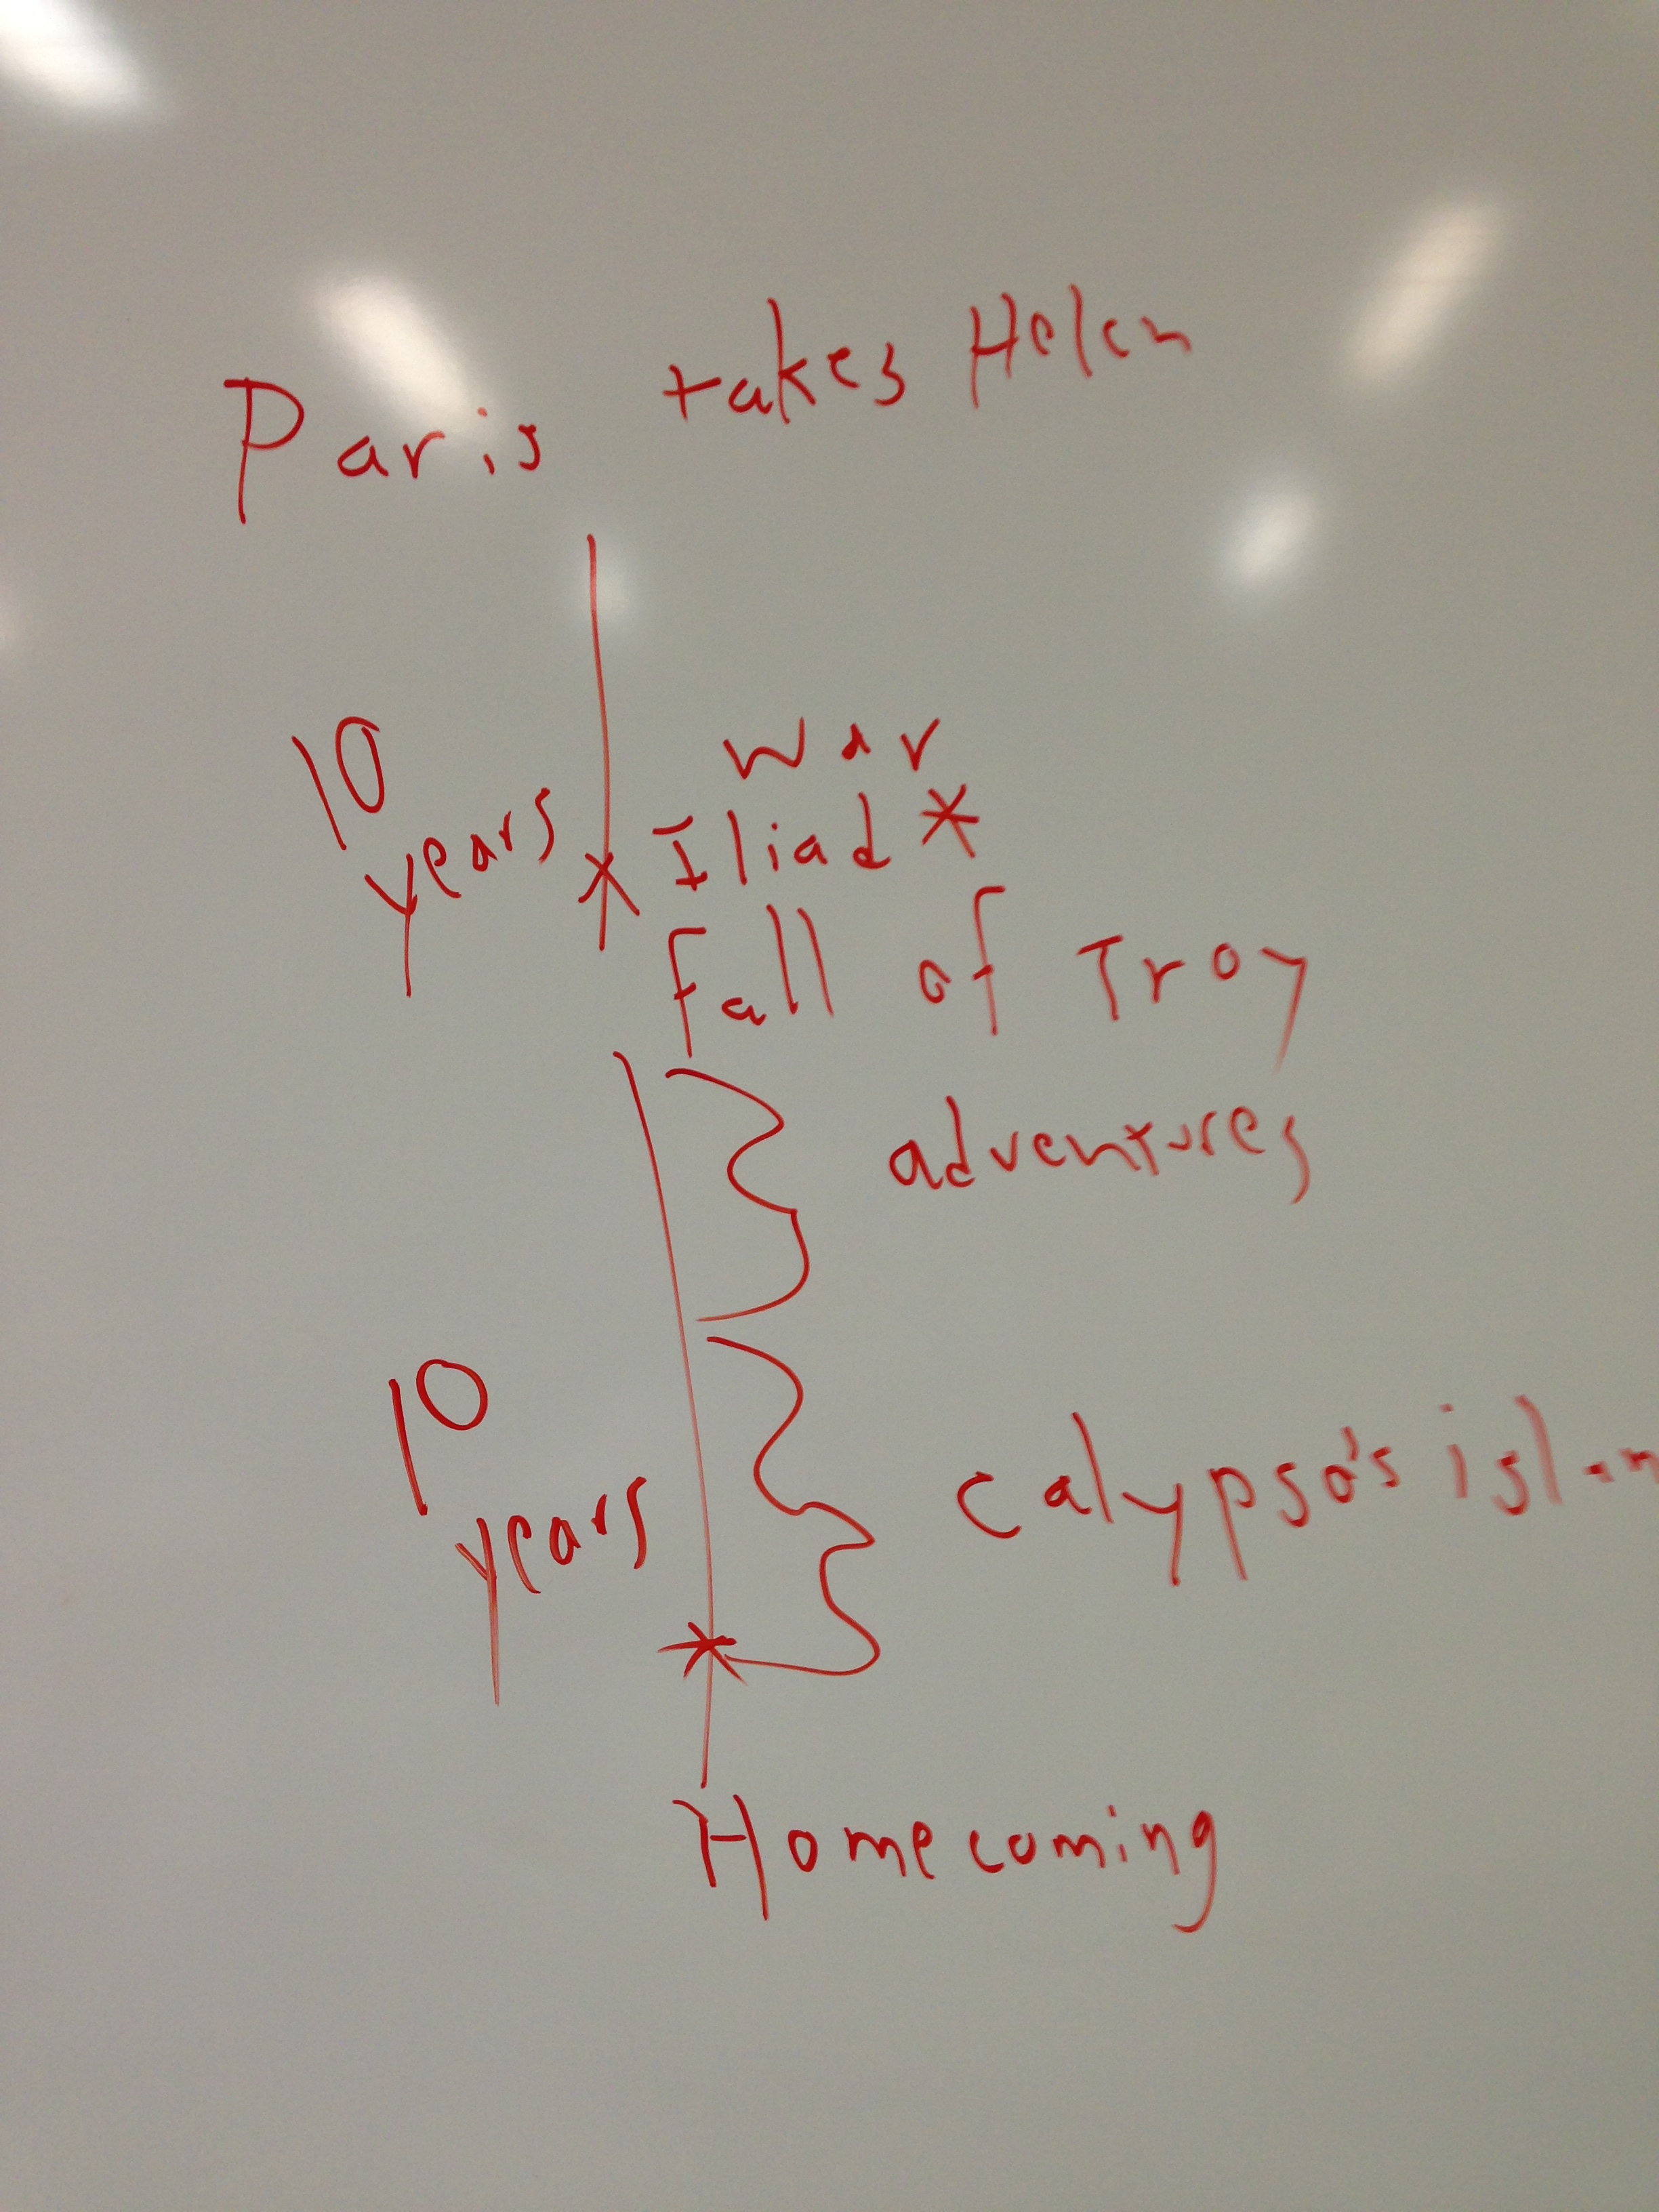 Paris takes Helen
10
years
War
Iliad *
Fall of Troy
adventures
10
years
Calypso's
Homecoming